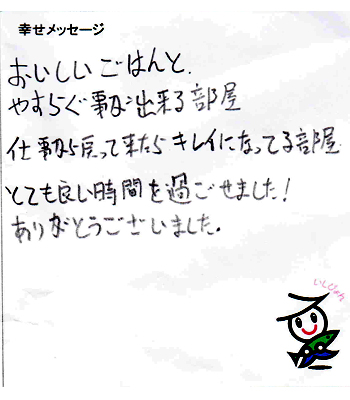 幸せメッセージ
おいしいごはんと、
やすらぐ事が出来る部屋
仕事から戻って来たらキレイになってる部屋
とても良い時間を過ごせました!
ありがとうございました。